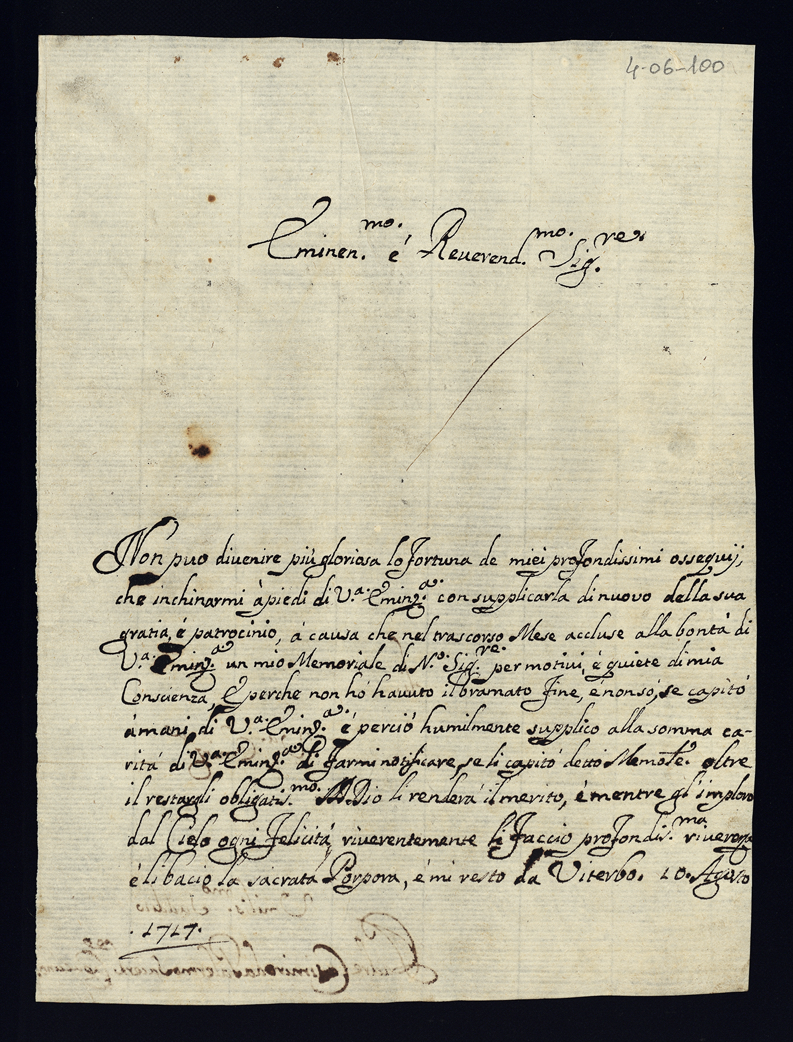 4-06-100
Eminen.mo. é Reverend.mo. Sig.re.
Non puo divenire più gloriosa la fortuna de miei profondissimi ossequij,
che inchinarmi à piedi di V.a. Eminz.a. con supplicarla di nuovo della sua
gratia, é patrocinio, á causa che nel trascorso Mese accluse alla bontá di
V.a. Eminz.a. un mio Memoriale di N.o. Sig.re. per motivi, é quiete di mia
Conscienza, E perche non hó havuto il bramato fine, é non só, se capitó
á mani di V.a. Eminz.a. é perció humilmente supplico alla somma ca-
ritá di V.a. Eminz.a. di farmi notificare, se li capitó detto Memole. oltre
il restargli obligatis.mo. Dio li renderá il merito, é mentre gl'imploro
dal Cielo ogni felicitá, riverentemente li faccio profondis.ma riverenza
é li bacio la sacrata Porpora, é mi resto da Viterbo. 10. Agosto
.1717.